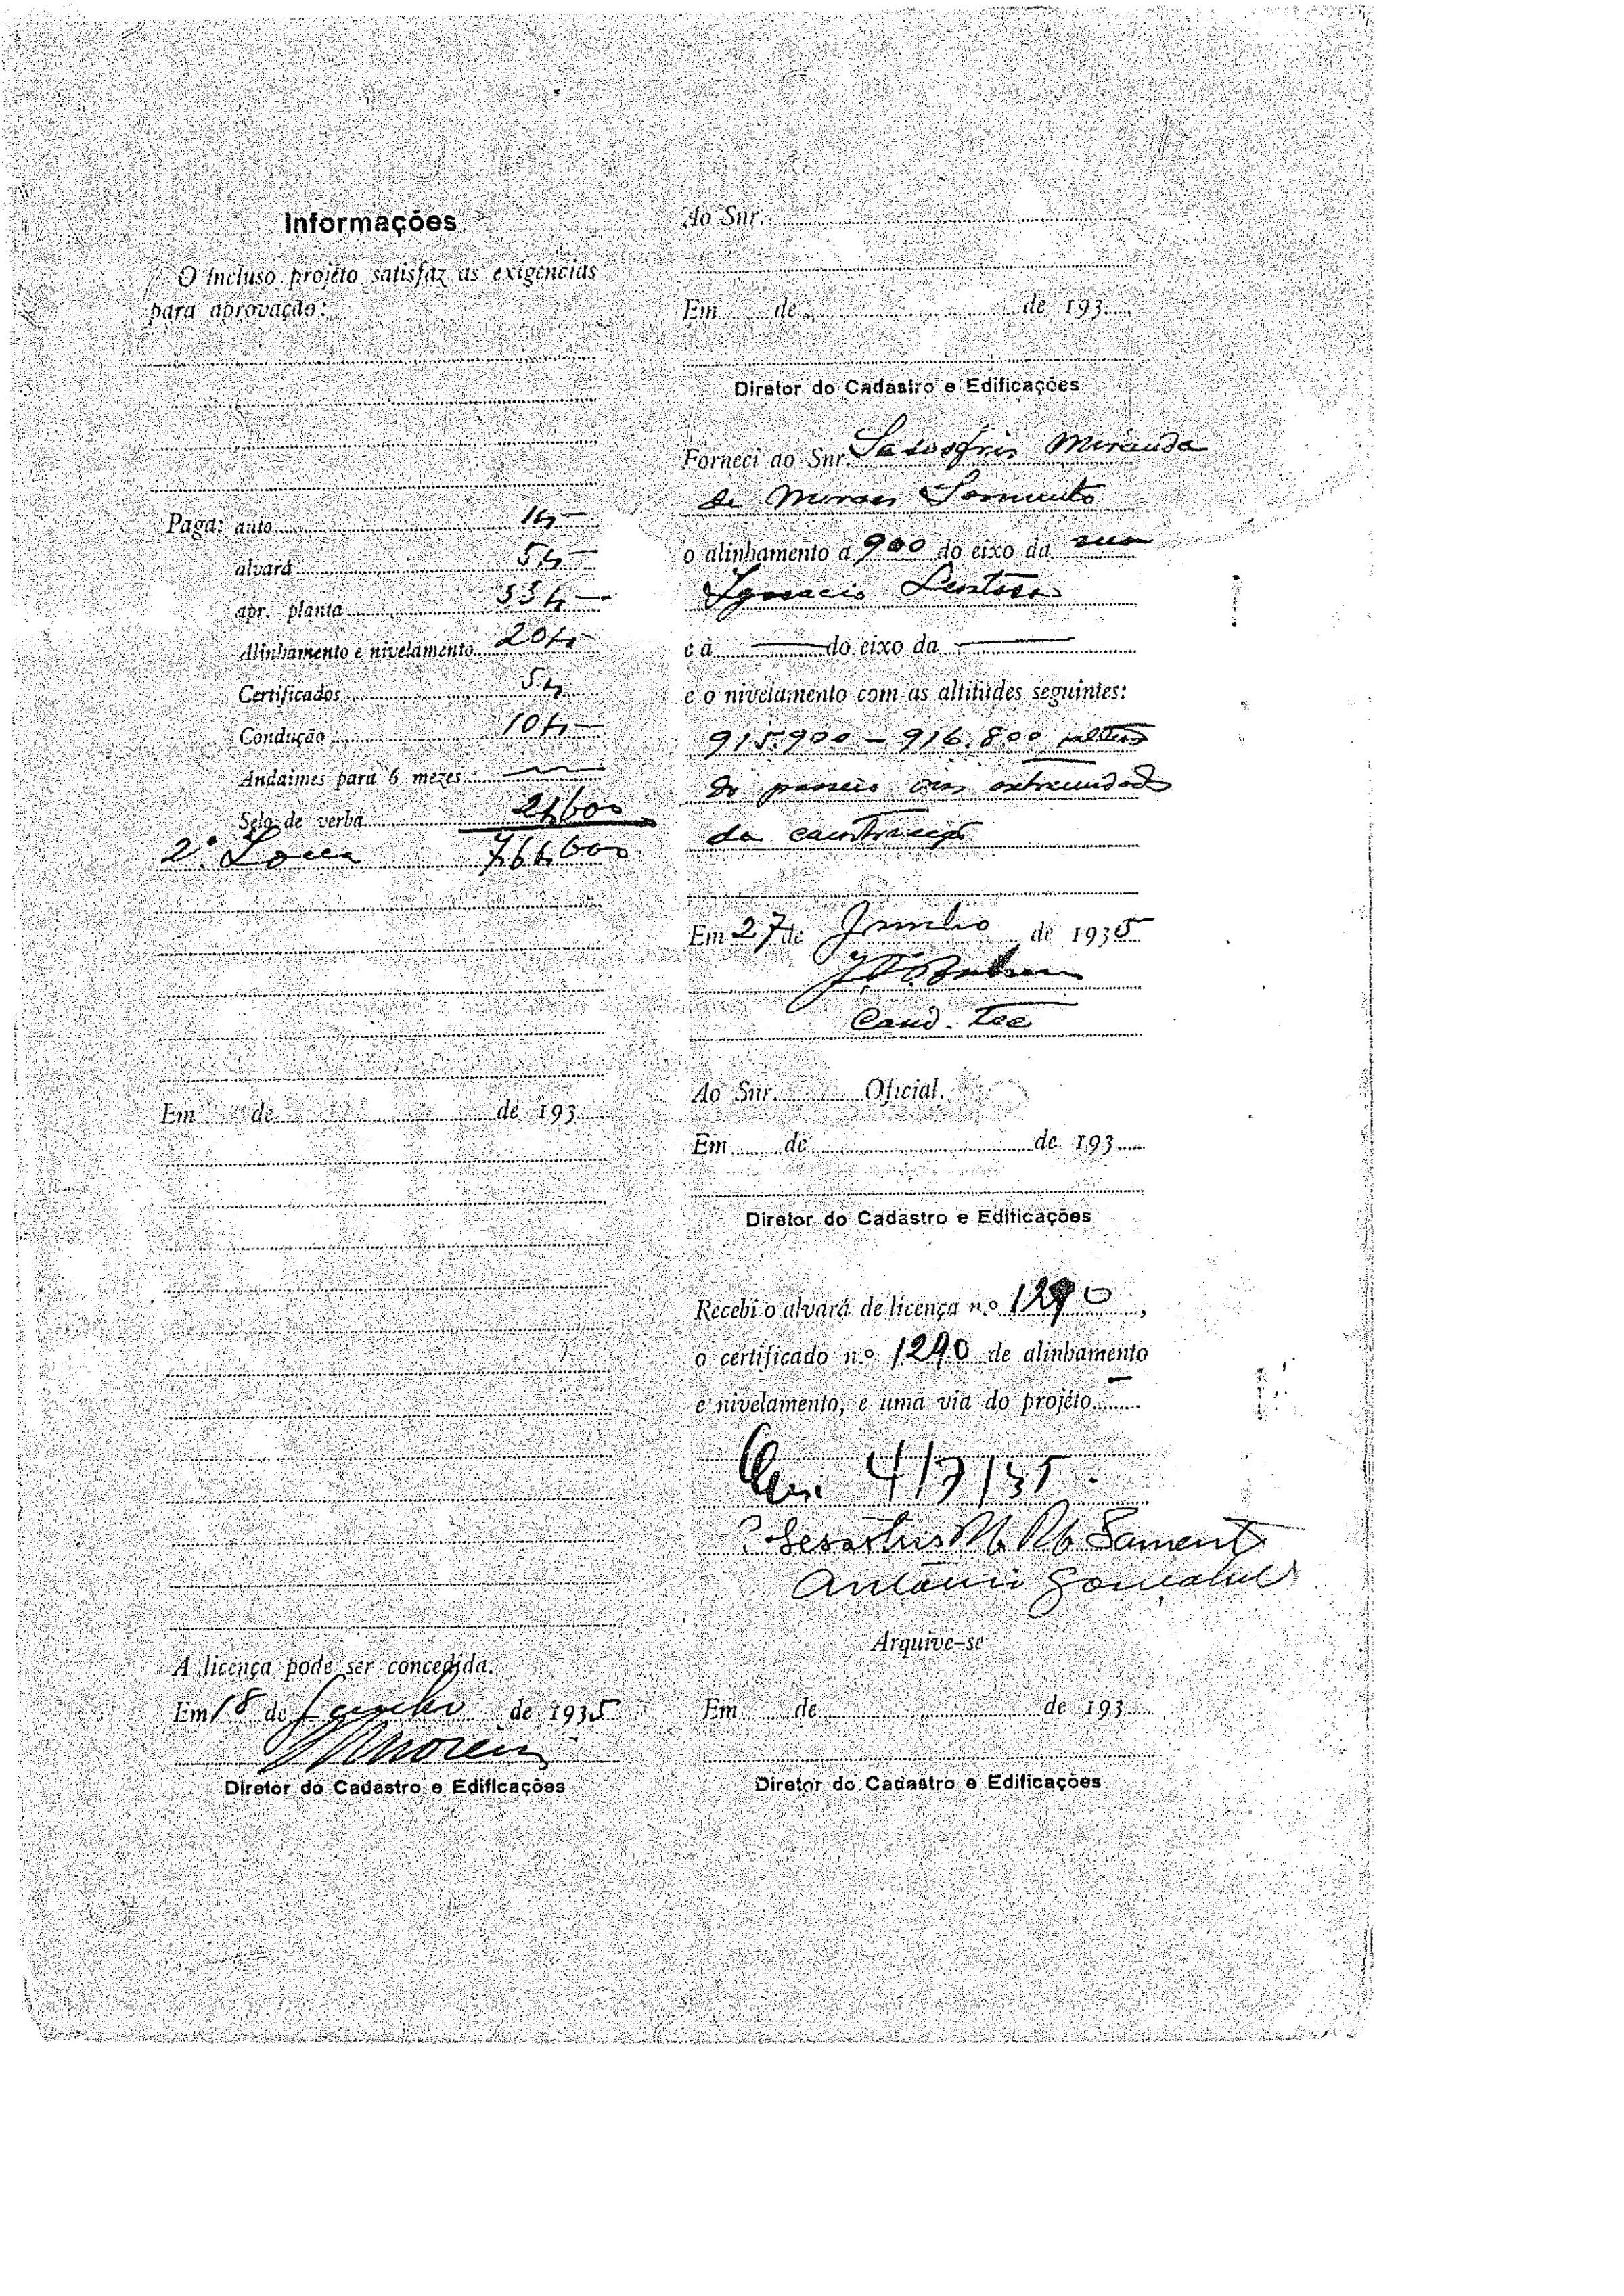 Informações
O incluso projéto satisfaz as exigencias
para aprovação:
Paga: auto 1$—
alvará 5$—
apr. planta 33$—
Alinhamento e nivelamento 20$—
Certificados 5$
Condução 10$—
Andaimes para 6 mezes
Selo de verba 2$600
2ª Zona 76$600
Em de de 193
A licença pode ser concedida.
Em 18 de Junho de 1935
Diretor do Cadastro e Edificações
Ao Snr.
Em de de 193
Diretor do Cadastro e Edificações
Forneci ao Snr. Miranda
de Moraes Sarmento
o alinhamento a 900 do eixo da rua
Ignacio
e a — do eixo da —
e o nivelamento com as altitudes seguintes:
915.900 – 916.800
do passeio nas extremidades
da construção
Em 27 de Junho de 1935
Cond. Tec
Ao Snr. Oficial.
Em de de 193
Diretor do Cadastro e Edificações
Recebi o alvará de licença n.º 1290,
o certificado n.º 1290 de alinhamento
e nivelamento, e uma via do projéto
Em 4/7/35.
Antonio Gonçalves
Arquive-se
Em de de 193
Diretor do Cadastro e Edificações